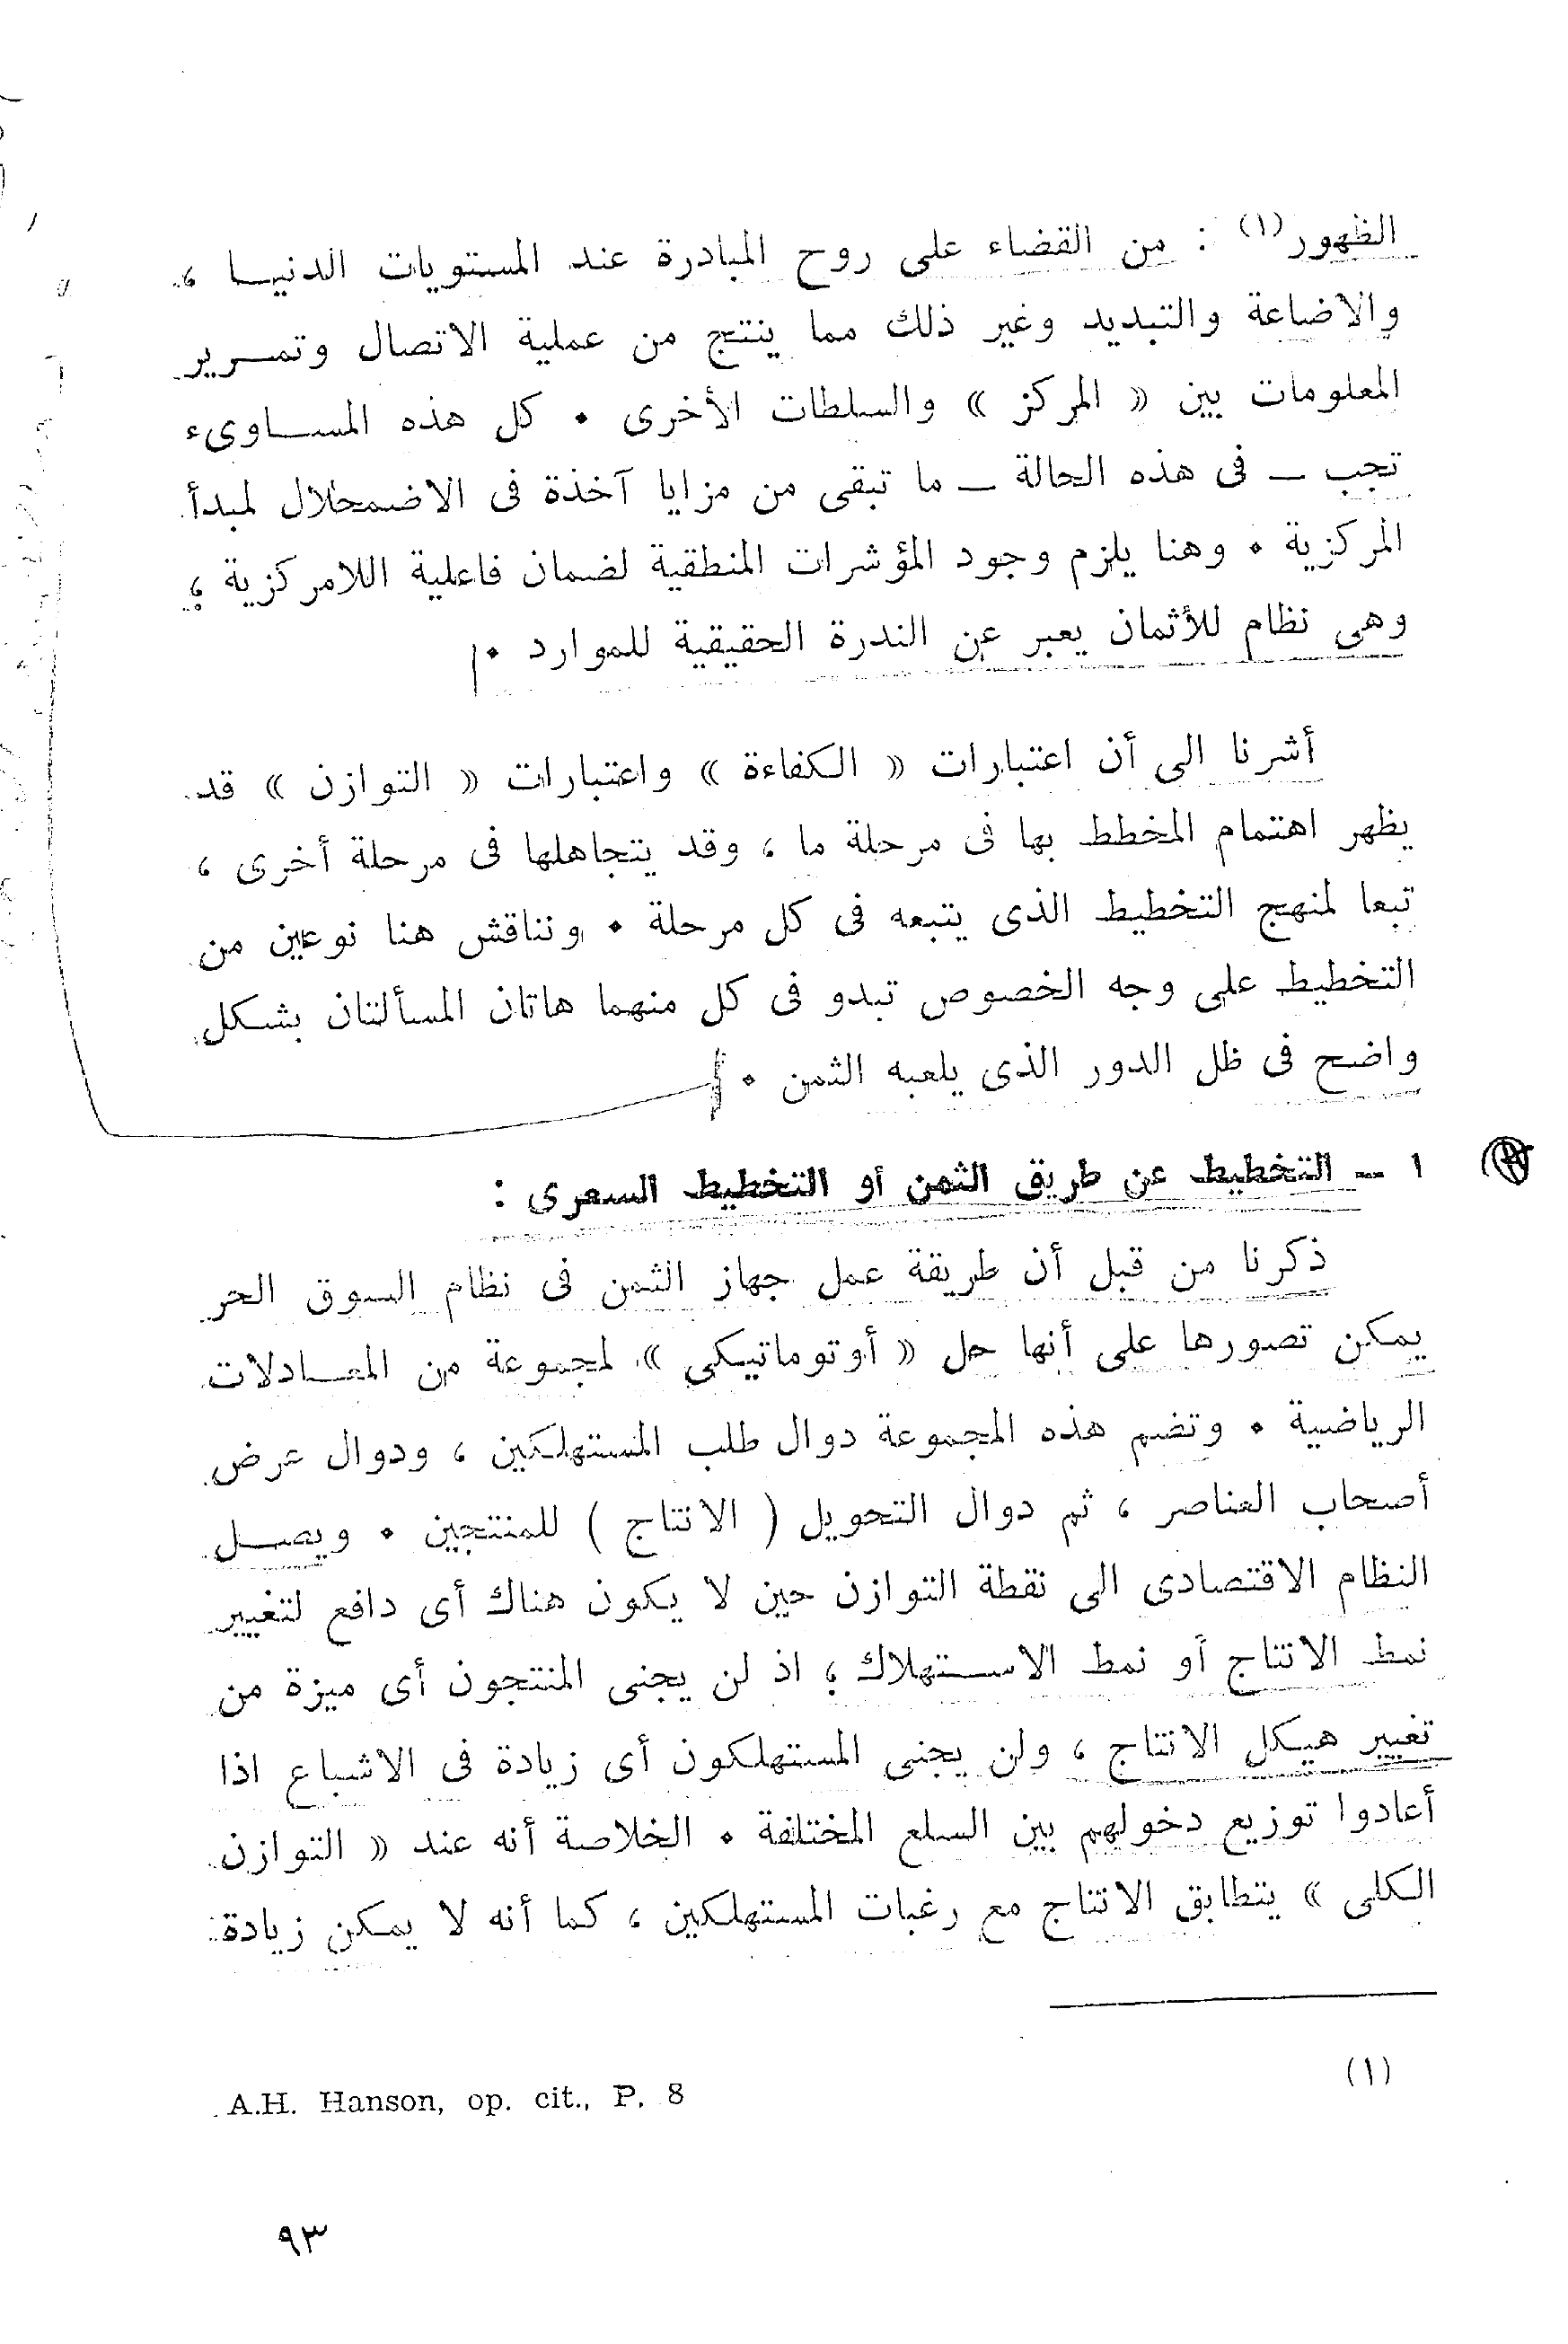 الظهور(١) : من القضاء على روح المبادرة عند المستويات الدنيـا ،
والاضاعة والتبديد وغير ذلك مما ينتج من عملية الاتصال وتمـرير
المعلومات بين « المركز » والسلطات الأخرى ٠ كل هذه المسـاوىء
تجب ــ فى هذه الحالة ــ ما تبقى من مزايا آخذة فى الاضمحلال لمبدأ
المركزية ٠ وهنا يلزم وجود المؤشرات المنطقية لضمان فاعلية اللامركزية ؛
وهى نظام للأثمان يعبر عن الندرة الحقيقية للموارد ٠
أشرنا الى أن اعتبارات « الكفاءة » واعتبارات « التوازن » قد
يظهر اهتمام المخطط بها فى مرحلة ما ، وقد يتجاهلها فى مرحلة أخرى ،
تبعا لمنهج التخطيط الذى يتبعه فى كل مرحلة ٠ ونناقش هنا نوعين من
التخطيط على وجه الخصوص تبدو فى كل منهما هاتان المسألتان بشكل
واضح فى ظل الدور الذى يلعبه الثمن ٠
١ ــ التخطيط عن طريق الثمن أو التخطيط السعرى :
ذكرنا من قبل أن طريقة عمل جهاز الثمن فى نظام السوق الحر
يمكن تصورها على أنها حل « أوتوماتيكى » لمجموعة من المعـادلات
الرياضية ٠ وتضم هذه المجموعة دوال طلب المستهلكين ، ودوال عرض
أصحاب العناصر ، ثم دوال التحويل ( الانتاج ) للمنتجين ٠ ويصـل
النظام الاقتصادى الى نقطة التوازن حين لا يكون هناك أى دافع لتغيير
نمط الانتاج أو نمط الاسـتهلاك ؛ اذ لن يجنى المنتجون أى ميزة من
تغيير هيكل الانتاج ، ولن يجنى المستهلكون أى زيادة فى الاشباع اذا
أعادوا توزيع دخولهم بين السلع المختلفة ٠ الخلاصة أنه عند « التوازن
الكلى » يتطابق الانتاج مع رغبات المستهلكين ، كما أنه لا يمكن زيادة
(١)
A.H. Hanson, op. cit., P. 8
٩٣